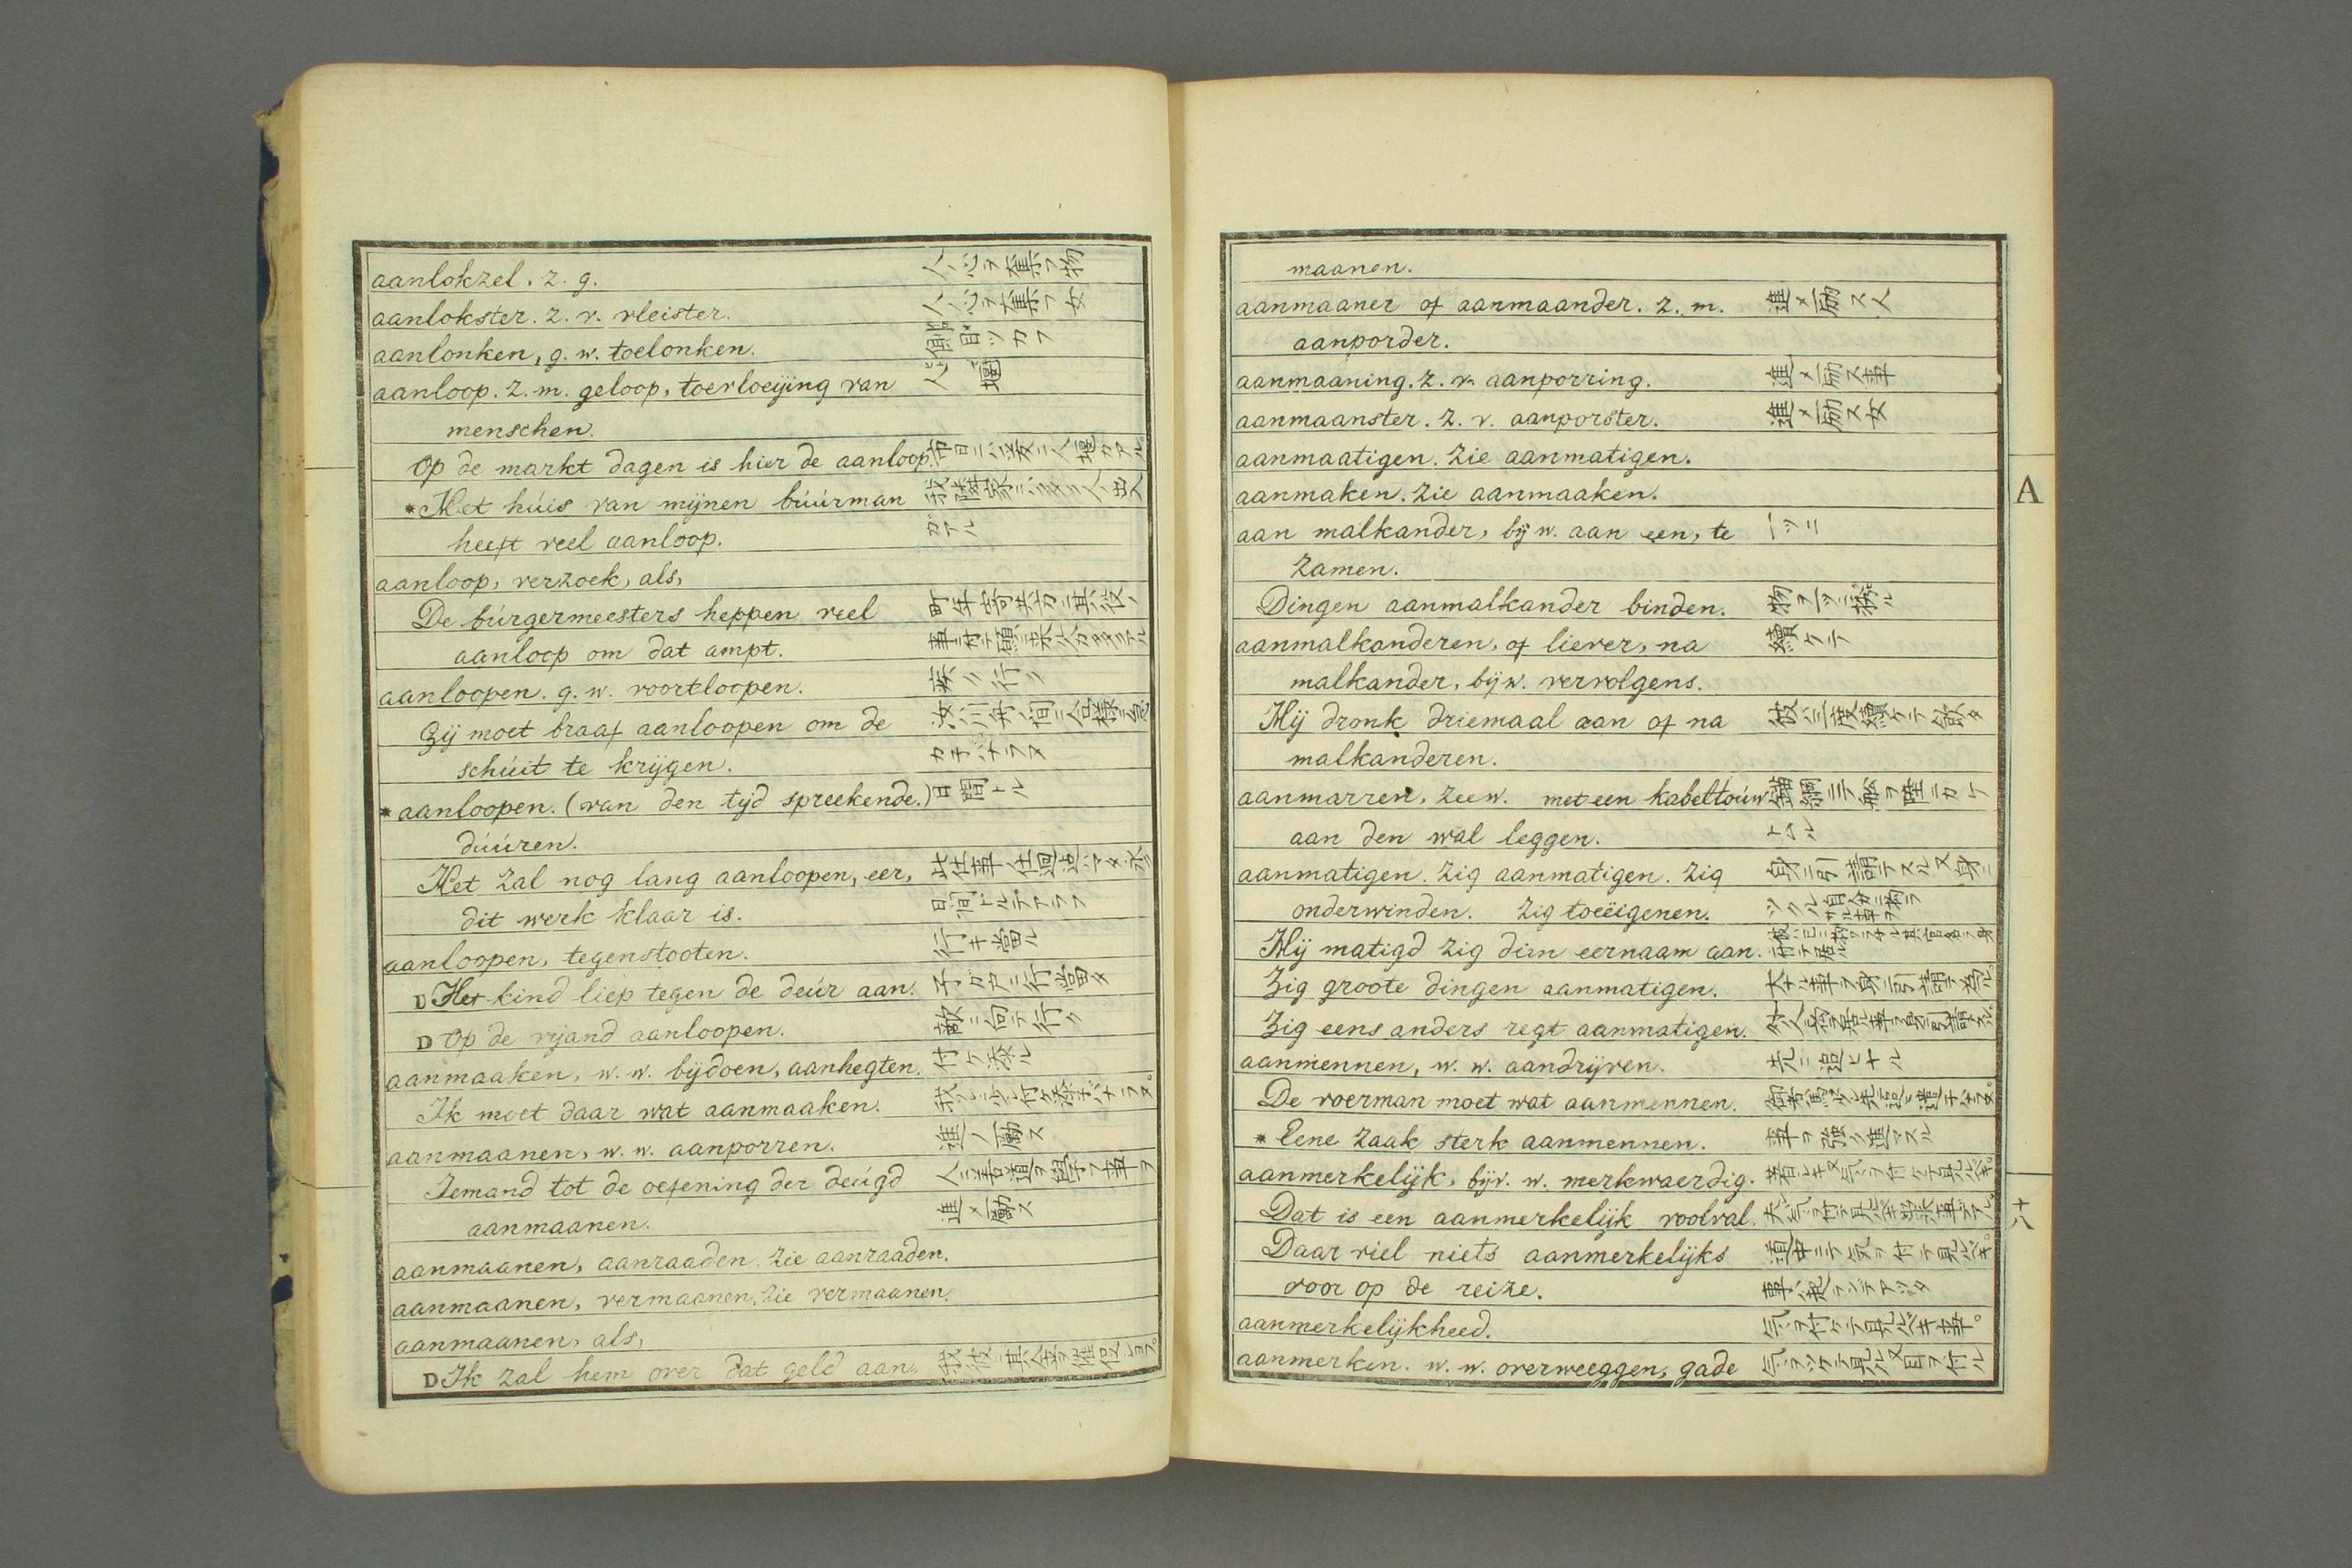 aanlokzel. z. g. 人ノ心ヲ奪フ物
aanlokster. z. v. vleister. 人ノ心ヲ奪フ女
aanlonken, g. w. toelonken. 側目ツカフ
aanloop. z. m. geloop, toevloeijing van
menschen.
Op de markt dagen is hier de aanloop.
*Het húis van mijnen búúrman
heeft veel aanloop. ガアル
aanloop, verzoek, als,
De búrgermeesters heppen veel
aanloop om dat ampt.
aanloopen. g. w. voortloopen. 疾ク行ク
Gij moet braaf aanloopen om de
schúit te krijgen.
*aanloopen. (van den tijd spreekende.) 日間トル
dúúren.
Het zal nog lang aanloopen, eer,
dit werk klaar is. 日間トルデアラフ
aanloopen, tegenstooten. 行キ當ル
D Het kind liep tegen de deúr aan. 子ガ戸ニ行當タ
D Op de vijand aanloopen. 敵ニ向テ行ク
aanmaaken, w. w. bijdoen, aanhegten. 付ケ添ル
Ik moet daar wat aanmaaken.
aanmaanen, w. w. aanporren. 進メ勵ス
Iemand tot de oefening der deúgd 人ニ善道ヲ學フ事ヲ
aanmaanen. 進メ勵ス
aanmaanen, aanraaden. zie aanraaden.
aanmaanen, vermaanen. zie vermaanen.
aanmaanen, als,
D Ik zal hem over dat geld aan=
maanen.
aanmaaner of aanmaander. z. m. 進メ励ス人
aanporder.
aanmaaning. z. v. aanporring. 進メ励ス事
aanmaanster. z. v. aanporster. 進メ励ス女
aanmaatigen. zie aanmatigen.
aanmaken. zie aanmaaken.
A
aan malkander, bijw. aan een, te 一ツニ
zamen.
Dingen aanmalkander binden. 物ヲ一ツニ
aanmalkanderen, of liever, na 續ケテ
malkander, bijw. vervolgens.
Hij dronk driemaal aan of na 彼ハ三度續ケテ飲タ
malkanderen.
aanmarren, zeew. met een kabeltoúw
aan den wal leggen.
aanmatigen. zig aanmatigen. zig
onderwinden. zig toeëigenen.
Hij matigd zig dien eernaam aan.
Zig groote dingen aanmatigen.
Zig eens anders regt aanmatigen.
aanmennen, w. w. aandrijven. 先ニ追ヒヤル
De voerman moet wat aanmennen.
*Eene zaak sterk aanmennen. 事ヲ強ク進マスル
aanmerkelijk, bijv. w. merkwaerdig.
Dat is een aanmerkelijk voolval.
十八
Daar viel niets aanmerkelijks
voor op de reize.
aanmerkelijkheed. 気ヲ付ケテ見ルベキ事。
aanmerken. w. w. overweeggen, gade 気ヲツケテ見ル又目ヲ付ル